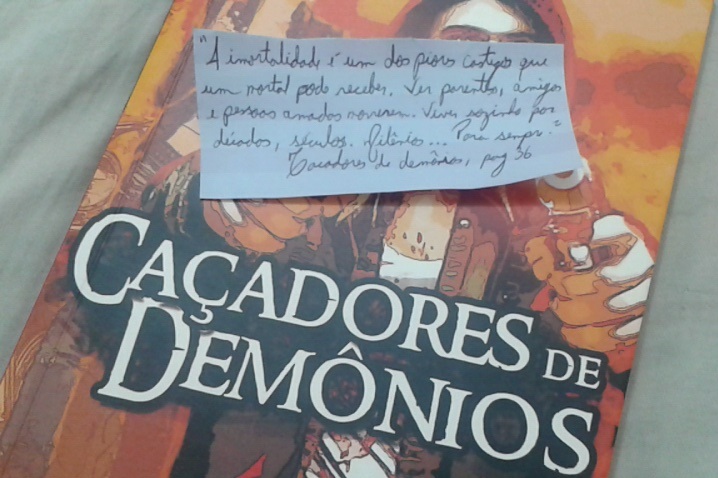 "A imortalidade é um dos piores castigos que
um mortal pode receber. Ver parentes, amigos
e pessoas amadas morrerem. Viver sozinho por
décadas, séculos. Milênios... Para sempre."
Caçadores de demônios, pag 36
CAÇADORES DE
DEMÔNIOS